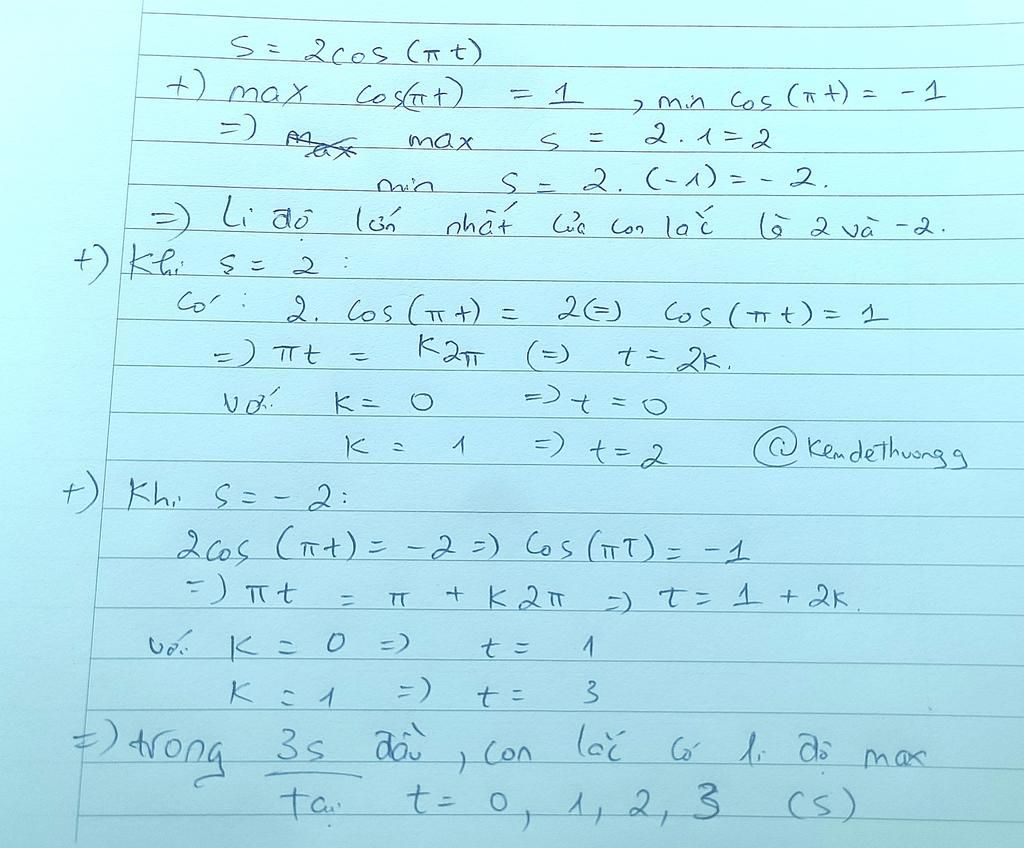 S = 2cos (πt)
+) max cos(πt) = 1 , min cos (πt) = -1
=) max max s = 2 . 1 = 2
min S = 2. (-1) = - 2.
=) Li độ lớn nhất của con lắc là 2 và -2.
+) Khi s = 2 :
Có : 2. cos (πt) = 2 (=) cos (πt) = 1
=) πt = K2π (=) t = 2K.
Với K = 0 =) t = 0
K = 1 =) t = 2 @kemdethuongg
+) Khi S = - 2 :
2cos (πt) = -2 =) cos (πT) = -1
=) πt = π + K2π =) t = 1 + 2K.
Với K = 0 =) t = 1
K = 1 =) t = 3
=) trong 3s đầu , con lắc có li độ max
tại t = 0, 1, 2, 3 (s)